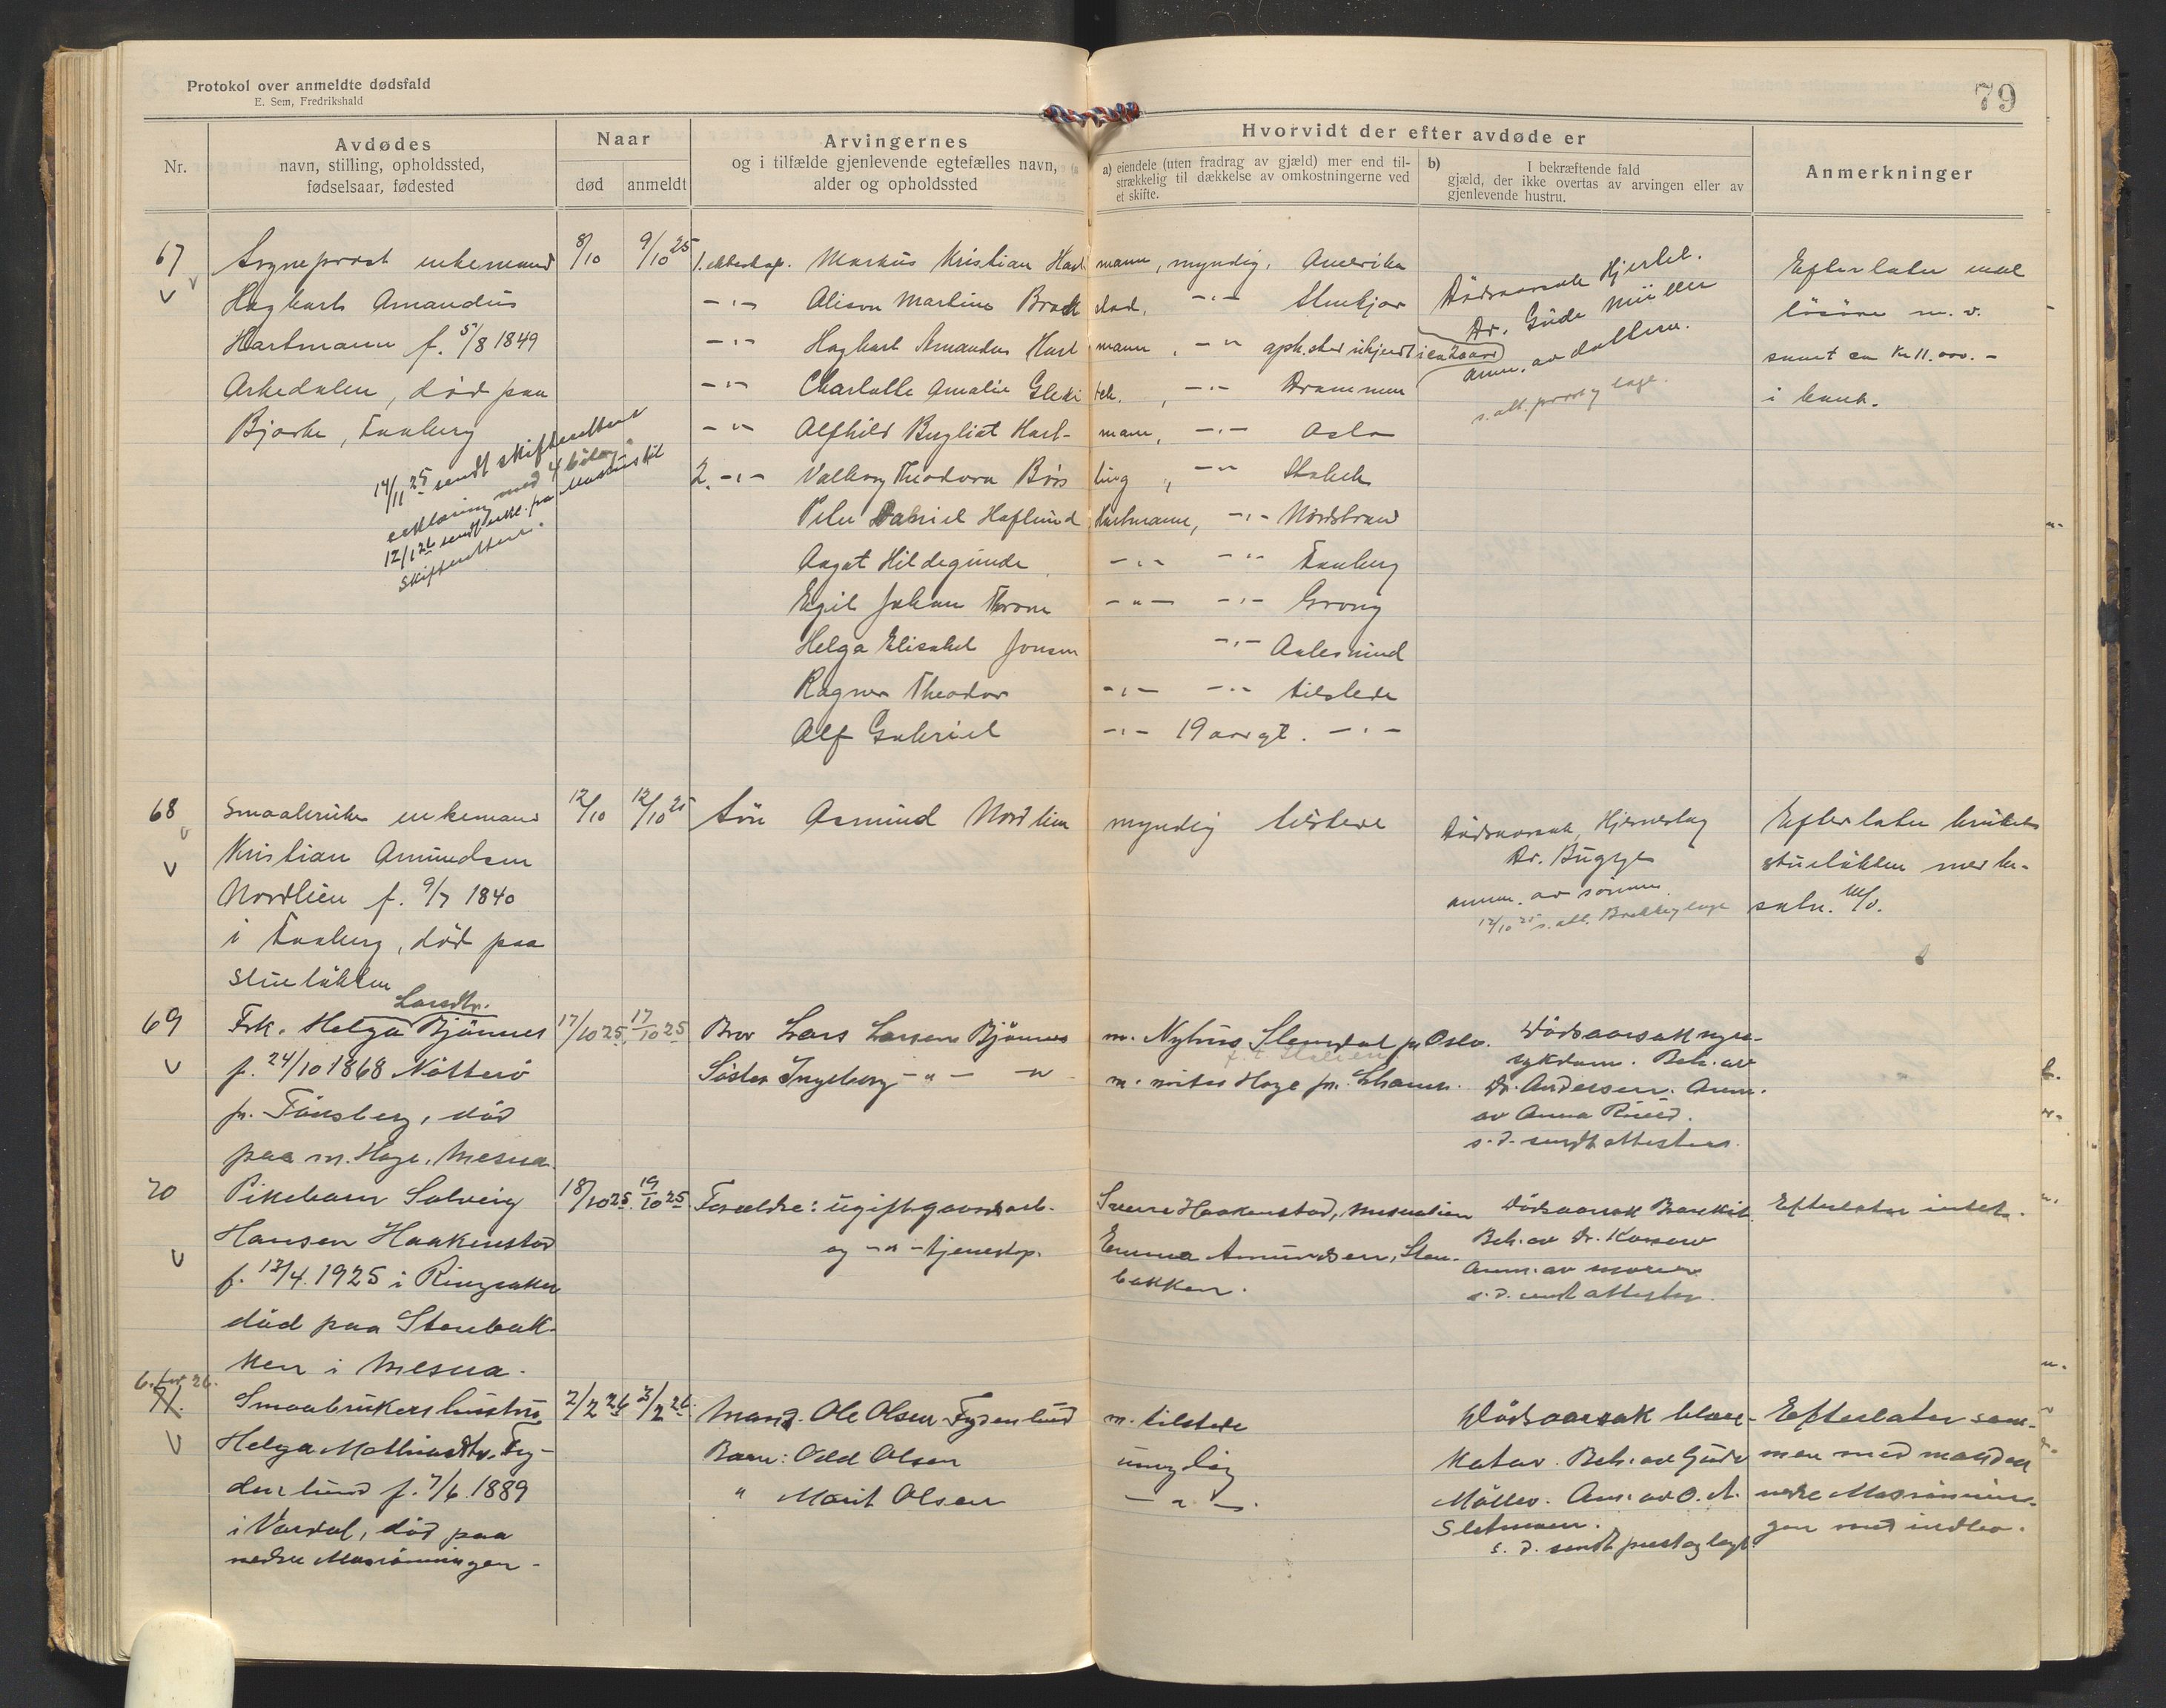 Protokol over anmeldte dødsfald
E. Sem, Fredrikshald
79
Nr.
Avdødes
navn, stilling, opholdssted,
fødselsaar, fødested
Naar
død
anmeldt
Arvingernes
og i tilfælde gjenlevende egtefælles navn,
alder og opholdssted
Hvorvidt der efter avdøde er
a) eiendele (uten fradrag av gjæld) mer end til-
strækkelig til dækkelse av omkostningerne ved
et skifte.
b) I bekræftende fald
gjæld, der ikke overtas av arvingen eller av
gjenlevende hustru.
Anmerkninger
67
Sogneprest enkemand
Hagbart Amandus
Hartmann f. 5/8 1849
Askedalen, død paa
Bjørke, Faaberg
14/11 25 sendt skifteretten
erklæring med 4 bilag
12/1 26 sendt erkl. fra Markus til
Skifteretten.
8/10
9/10 25
1. ekteskap. Markus Kristian Hartmann, myndig, Amerika
-"- Martine stad, -"- Stenkjær
-"- Hagbart Amandus Hartmann, -"- oph.sted ukjendt
-"- Charlotte Amalie -"- Drammen
-"- Alfhild Hartmann, -"- Oslo
2. -"- Valborg Theodora -"- Stabek
Peter Haflund Hartmann, -"- Nordstrand
Aagot Hildegunde -"- -"- Faaberg
Egil Johan -"- -"- Grong
Helga Elisabet Jonsen -"- Aalesund
Ragnar Theodor -"- -"- tilstede
Alf Gabriel -"- 19 aar gl. -"-
Dødsaarsak Hjertel.
Dr. Gude Müller
anm. av datteren.
s. att. prest og lage.
Efterlater endel
løsøre m. v.
samt ca Kr 11.000.-
i bank.
68
Smaabruker enkemand
Kristian Amundsen
Nordlien f. 9/7 1840
i Faaberg, død paa
Stueløkken
12/10
12/10 25
Søn Asmund Nordlien myndig tilstede
Dødsaarsak, Hjerneslag
Dr. Bugge
anm. av sønnen.
12/10 25 s. att.
Efterlater bruket
stueløkken med be-
sætn. m/v.
69
Larsdtr.
Frk. Helga Bjönnes
f. 24/10 1868 Nötterö
pr. Tönsberg, död
paa m. Hage, Mesna.
17/10 25.
17/10 25
Bror Lars Larsen Bjönnes m. Nyhus Slemdal pr Oslo.
Søster Ingeborg -"- -"- m. Hage pr. Lhamr.
Dödsaarsak nyre-
sykdom. Beh. av
Dr. Andersen. Anm.
av Anna Ruud.
s. d. sendt attester.
70
Pikebarn Solveig
Hansen Haakenstad
f. 12/4. 1925 i Ringsaker
död paa Stenbak-
ken i Mesna.
18/10 25.
19/10 25.
Forældre: ugift gaardsarb. Sverre Haakenstad, Mesnalien
og -"- tjenestep. Emma Amundsen, Sten-
bakken.
Dödsaarsak Bronkit.
Beh. av Dr.
Anm. av moren
s. d. sendt attester.
Efterlater intet.
6. for 26.
71.
Smaabrukers hustru
Helga Mathiasdtr. Fry-
denlund f. 7/6. 1889
i Vardal, död paa
nedre Mosrönningen.
2/2 26
3/2 26.
Mand. Ole Olsen Frydenlund m. tilstede
Barn: Odd Olsen umyndig
" Marit Olsen -"-.
Dödsaarsak blære-
katar. Beh. av Gude
Möller. Anm. av O. A.
Sletmoen.
s. d. sendt prest og lagt.
Efterlater sam-
men med manden
nedre Mosrönnin-
gen med indbo.